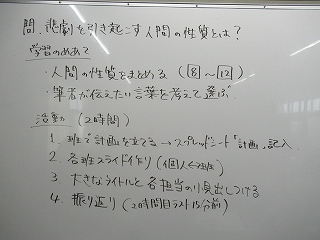 問. 悲劇を引き起こす人間の性質とは?
学習のめあて
・人間の性質をまとめる (8〜12)
・筆者が伝えたい言葉を考えて選ぶ
活動 (2時間)
1. 班で計画を立てる → スプレッドシート「計画」記入
2. 各班スライド作り (個人⇔班)
3. 大きなタイトルと各担当の小見出しつける
4. 振り返り (2時間目ラスト15分前)